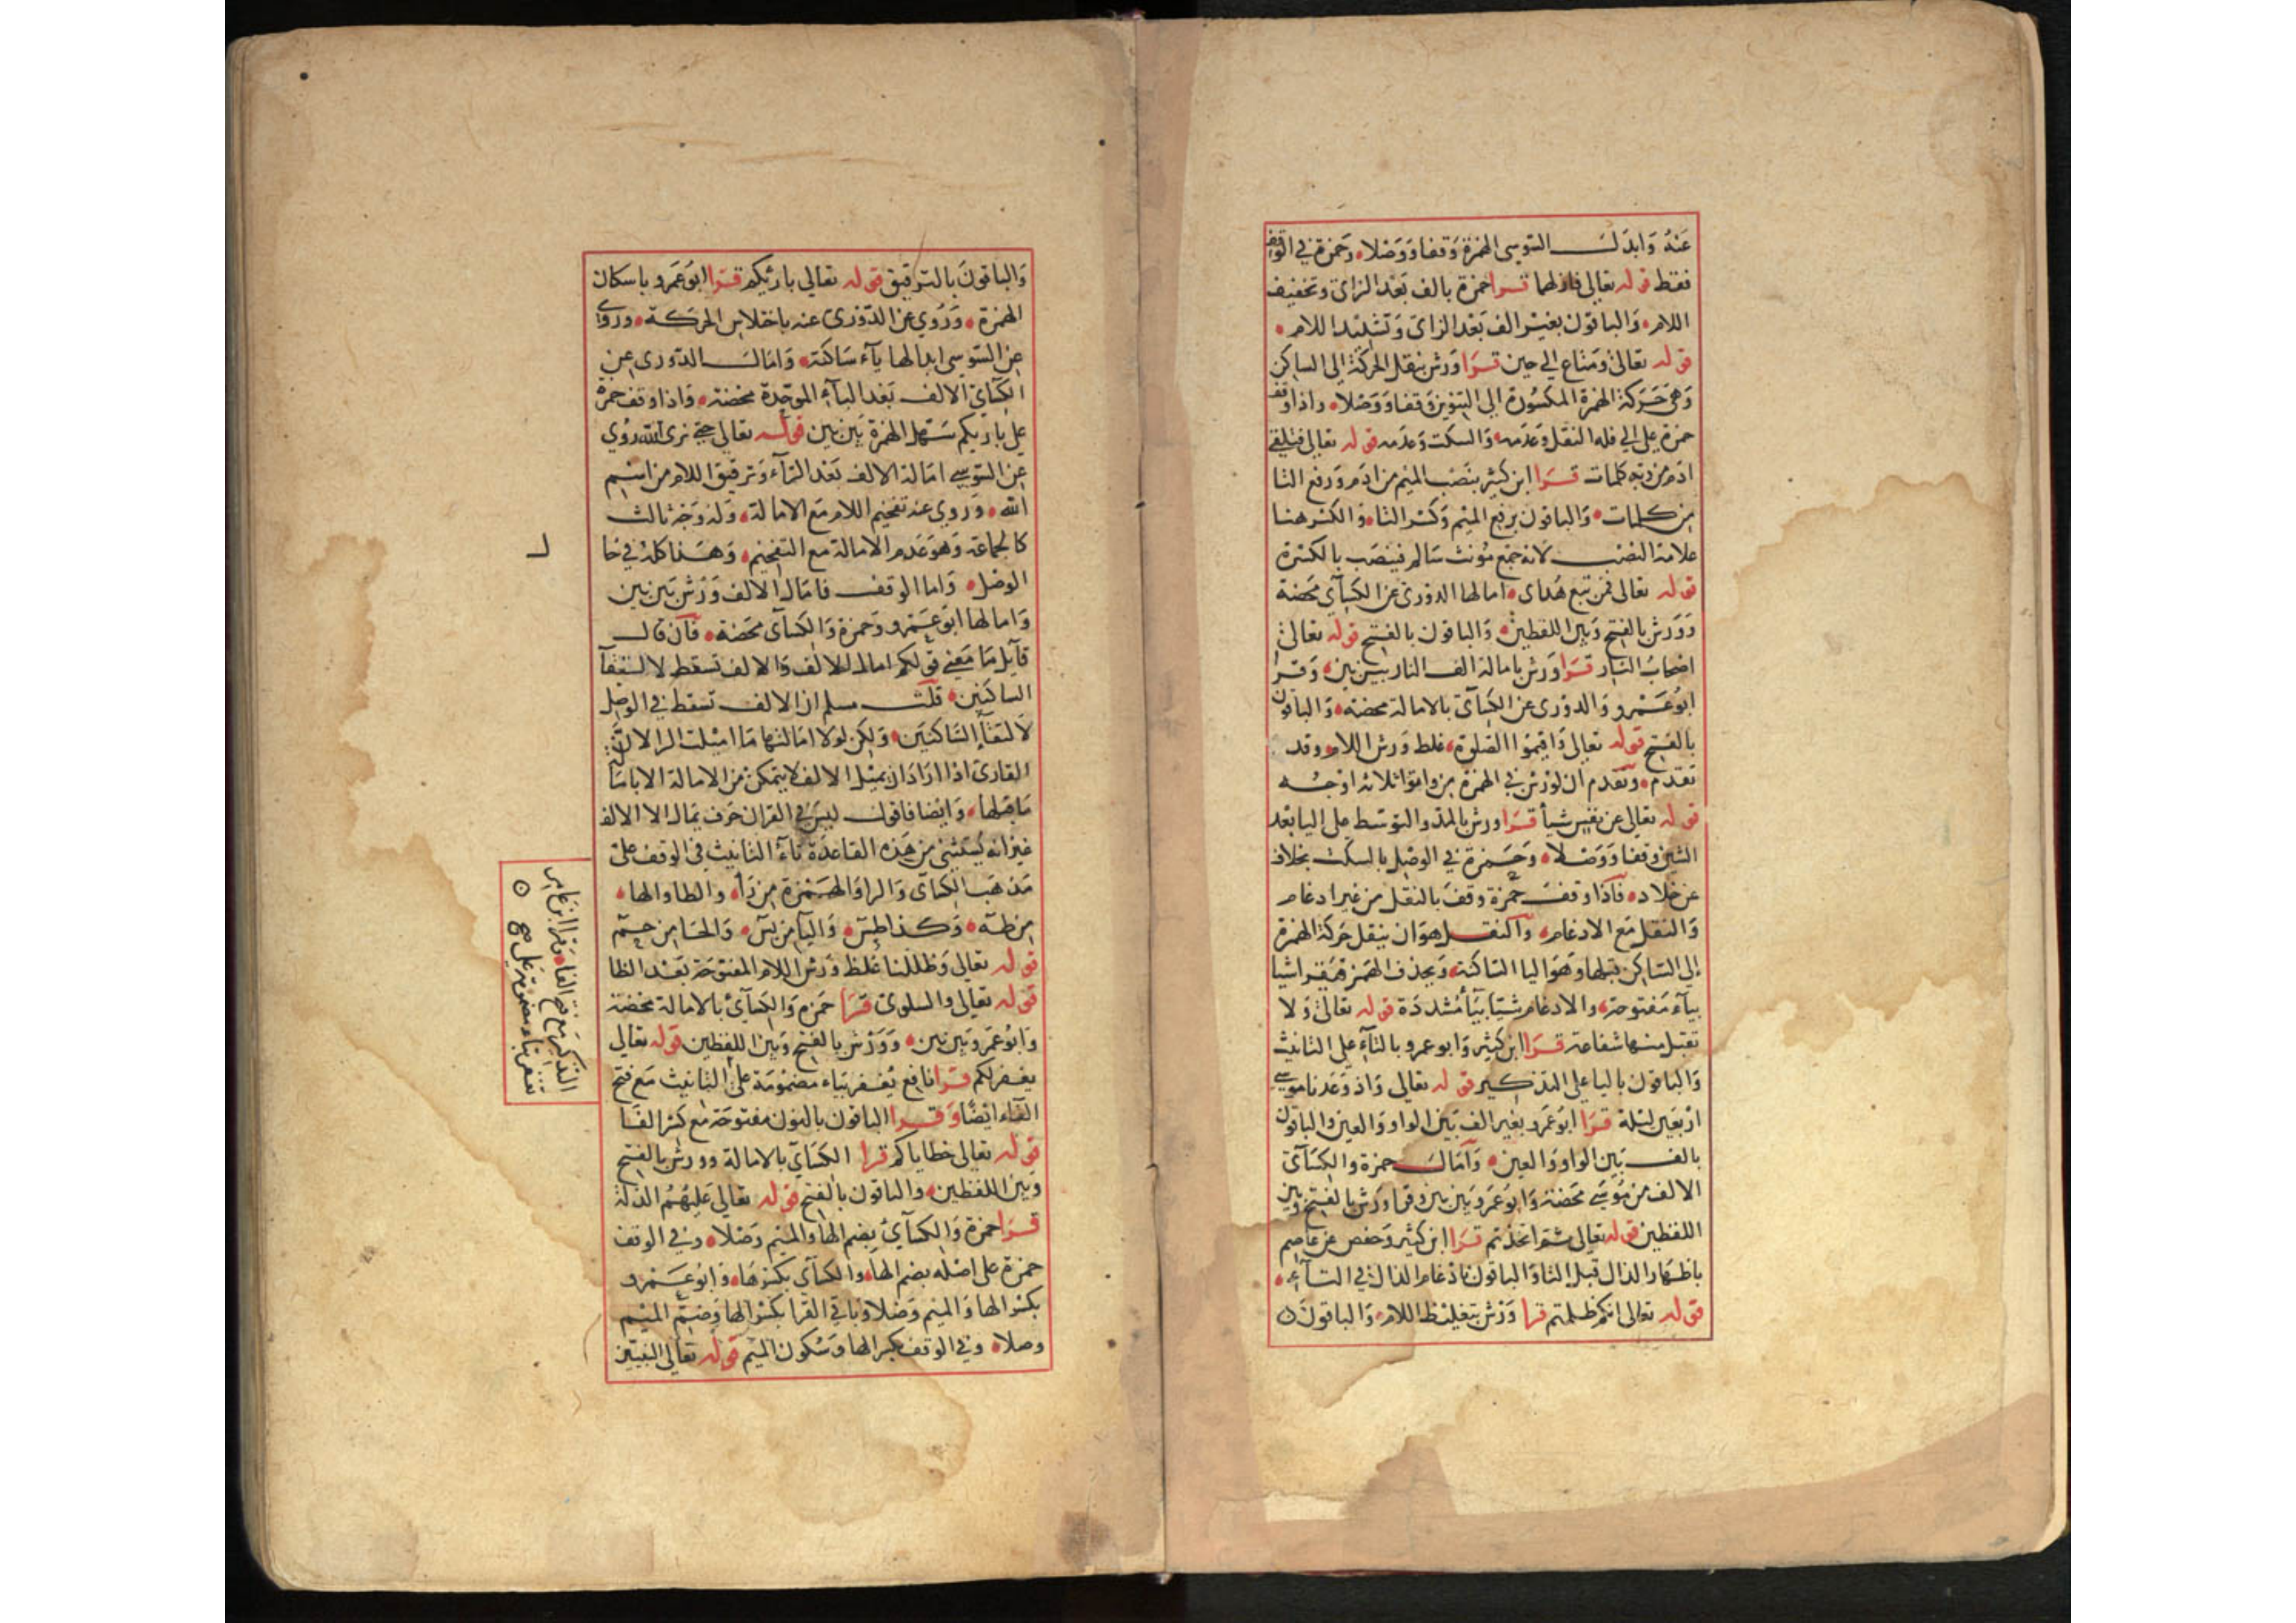 عَنْهُ وَابدَلَ السّوسي الهمزة وَقفا وَوَصْلا، وَحمزة في الوقف
فقط قوله تعالى فازلهما قرا حمزة بالف بَعْد الزاي وتخفيف
اللام، وَالباقون بغير الف بَعْد الزاي وَتشديد اللام،
قوله تعالى ومَتاع الي حين قرَا وَرش بنقل الحركة الي الساكن
وَهي حَركة الهمزة المكسورة الي التنوين وَقفا وَوَصْلا، واذا وقف
حمزة على الي فله النقل وَعَدَمه، وَالسكت وَعدمه قوله تعالى فتلقي
ادم من ربه كلمات قرَا ابن كثير بنَصْب الميم من ادَم وَرفع التا
من كلمات، وَالباقون برفع الميم وَكسْر التا، وَالكسْر هنا
علامة النصْب لانه جمع مؤنث سَالم فينصَب بالكسْرة
قوله تعالى فمن تبع هُداي، امالها الدوْري عن الكسَآي محَضة
وَوَرش بالفتح وَبين اللفظين، وَالباقون بالفتح قوله تعالى
اصْحابُ النار قرَا وَرش بامالة الف النار بين بين، وَقرا
ابوُعَمْرو وَالدوْري عن الكسَآي بالامالة محضة، وَالباقون
بالفتح قوله تعالى وَاقيموا الصَلوة، غلظ وَرش اللام وقد
تقدم، وتقدم ان لوَرْش في الهمزة من وامنوا ثلاثة اوجُه
قوله تعالى عن نفس شيأ قرَا ورش بالمد والتوسّط على اليا بَعْد
الشين وَقفا وَوَصْلا، وَحَمزة في الوصْل بالسكت بخلاف
عن خلاد، فَاذا وَقفَ حمزة وقفَ بالنقل من غير ادغام
وَالنقل مَع الادغام، وَالنقل هوَ ان ينقل حَركة الهمزة
إلى السّاكن قبلها وَهوَ اليا السّاكنة، وَيحذف الهمزة فيقرا شيا
بيآء مَفتوحة، والادغام شيّا بيَأ مُشددَة قوله تعالى وَلا
تقبل منها شفاعة قرَا ابن كثير وَابو عمرو بالتآء على التانيث
وَالباقون باليا على التذكير قوله تعالى وَاذ وَعَدنا موسي
ارْبَعين ليْلة قرَا ابوعَمرو بغير الف بَين الواو وَالعين والباقون
بالف بَين الواو وَالعين، وَامَال حمزة والكسَآي
الالف من موُسَي محَضة وَابوُعَمرو بَين بَين وقرا وَرْش بالفتح وَبين
اللفظين قوله تعالى ثم اتخذتم قرَا ابن كثير وَحفص عن عَاصِم
باظهار الذال قبل التا وَالباقون بادْغام الذال في التآء،
قوله تعالى انكم ظلمتم قرا وَرْش بتغليظ اللام، وَالباقونَ
وَالباقونَ بالترقيق قوله تعالى بارئكم قرَا ابوُ عَمرو باسكان
الهمزة، وَرُوي عن الدّوْري عنه باختلاس الحركة، وروي
عن السّوسي ابدالها يآء سَاكنة، وَامَال الدّوري عن
الكسَآي الالف بَعْد البآء الموحّدة محْضة، وَاذا وَقف حمزة
على بارئكم سَهل الهمزة بَين بَين قوله تعالى حتي نري الله رُوي
عن السّوسي امَالة الالف بَعْد الرآء وَترقيق اللام من اسْم
الله، وَرُوي عنه تفخيم اللام مَع الامالة، وَله وَجْه ثالث
كالجماعة وَهوَ عَدم الامالة مع التفخيم، وَهَذا كله في حَا
الوصْل، وَاما الوقف فامَال الالف وَرْش بَين بين
وَامالها ابوُعَمْرو وَحمزة وَالكسَآي محَضة، فَان قال
قآيل مَا مَعني قولكم امال الالف وَالالف تسقط لالتقآ
الساكنين، قلت مسلم ان الالف تسقط في الوصْل
لالتقآ السّاكنين، وَلكن لولا امَالتها مَا اميلت الرا لان
القارئ اذا ارَادَ ان يميْل الالف لا يتمكن من الامالة الا بامَا
مَا قبلها، وَايْضا فاقول ليسَ في القران حَرف يمَال الا الالف
غير انه يُسْتثني من هَذه القاعدَة تآء التانيث في الوقف على
مَذهَب الكسَآي وَالرا وَالهمْزة من رَأ، والطا والها،
من طه، وَكذا طسَ، وَاليآ من يسَ، وَالحا من حم
قوله تعالى وَظللنا غلظ وَرش اللام المفتوحَة بعْد الظا
قوله تعالى والسلوي قرَا حَمزه وَالكسَآي بالامالة محضة
وَابوُ عمَرو بَين بَين، وَوَرْش بالفتح وَبين اللفظين قوله تعالى
يغفرلكم قرَا نافع يُغفر بيَاء مضمُومَة على التانيث مَع فتح
الفآء ايْضًا وَقرا الباقون بالنون مفتوحَة مَع كسْر الفَا
قوله تعالى خطاياكم قرا الكسَآي بالامالة وورش بالفتح
وَبين اللفظين، والباقون بالفتح قوله تعالى عَليهُمُ الذلة
قرَا حمزة وَالكسآيُ بضم الها وَالميم وَصْلا، وفي الوقف
حمزة على اصْله بضم الها، وَالكسآي بكسْرهَا، وَابوُعَمْرو
بكسْر الها وَالميم وَصْلا وَباقي القرا بكسْر الها وَضمّ الميم
وصلا، وَفي الوقف بكسر الها وَسُكون الميم قوله تعالى النبيّين
التذكير مَع فتح الفآء وقرا ابن عامر